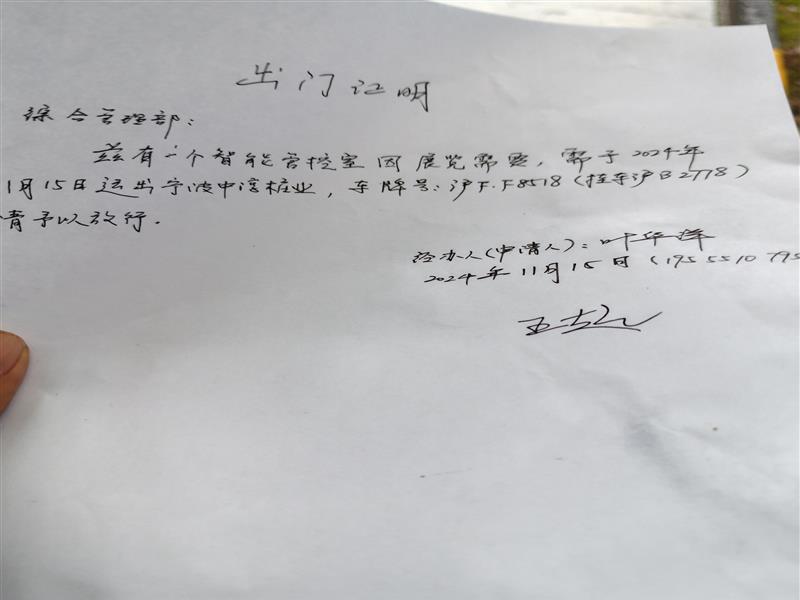 出门证明
综合管理部：
兹有一个智能管控室因展览需要，需于2024年
1月15日运出宁波中淳桩业，车牌号：沪F·F8518（挂车沪B2778）
请予以放行。
经办人（申请人）：叶华洋
2024年11月15日（195 5510 795